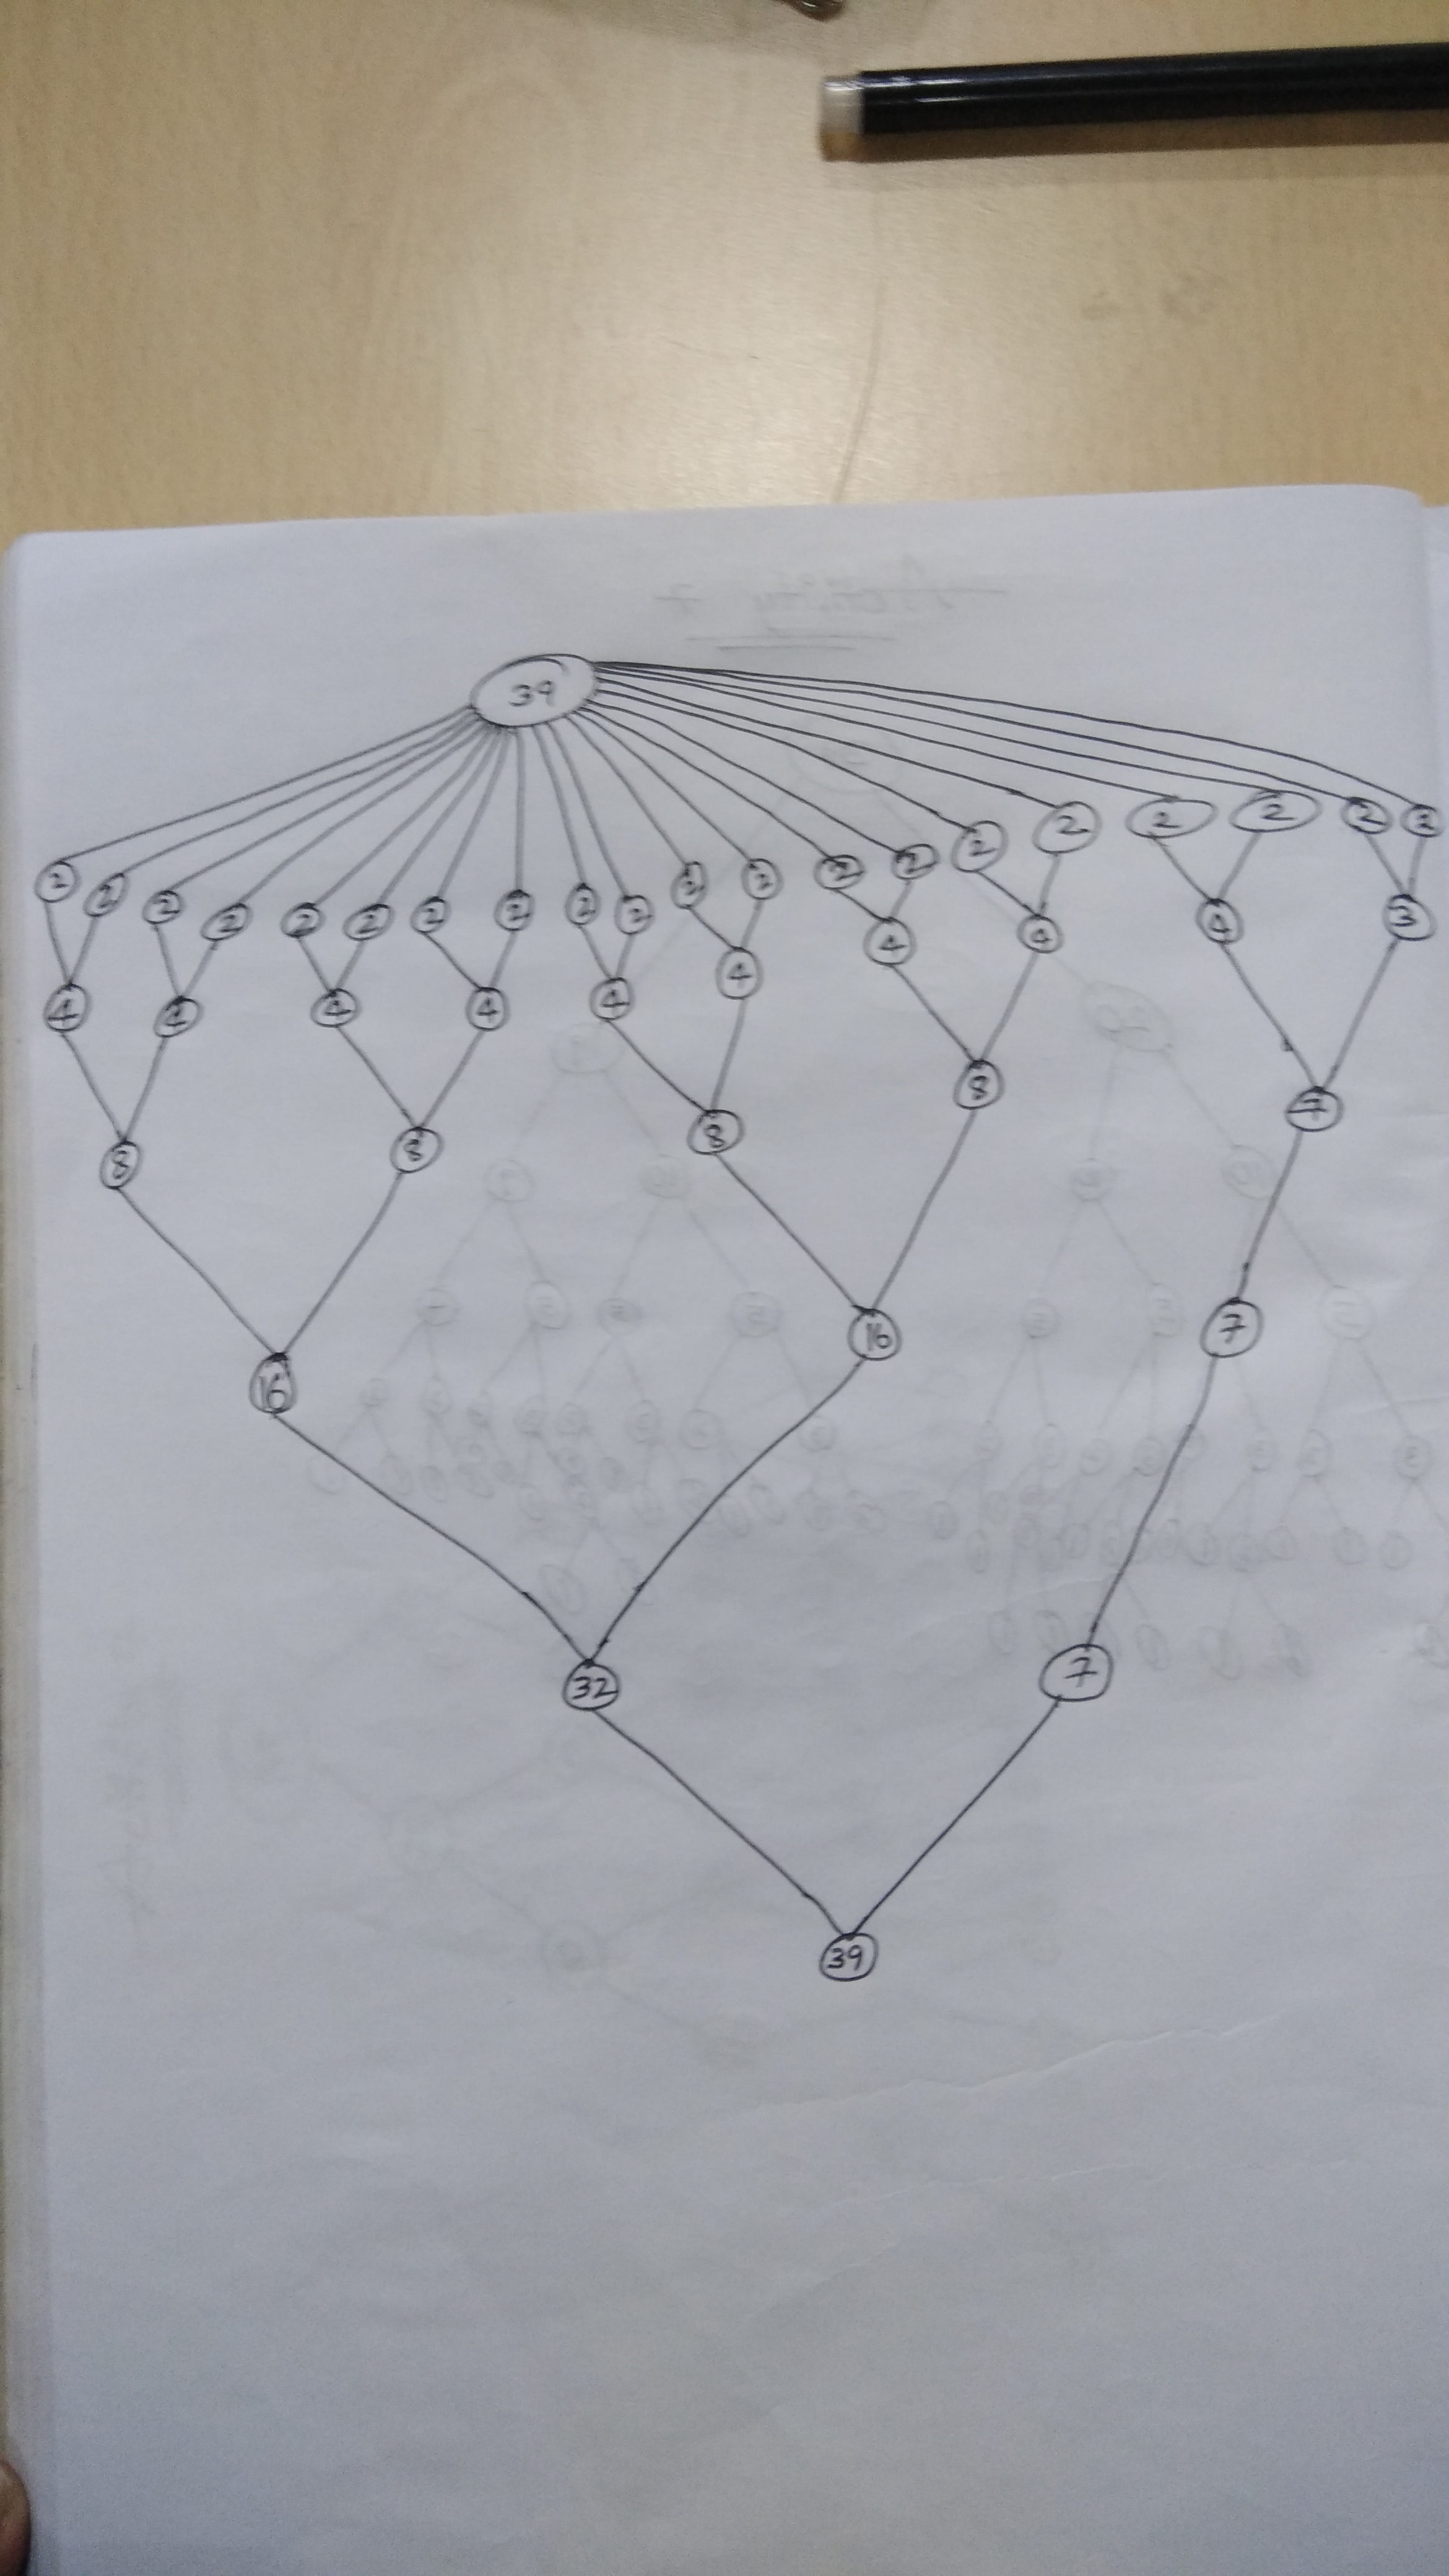 39
2 2 2 2 2 2 2 2 2 2 2 2 2 2 2 2 2 2 2 2
4 4 4 4 4 4 4 4 4 3
8 8 8 8 7
16 16 7
32 7
39